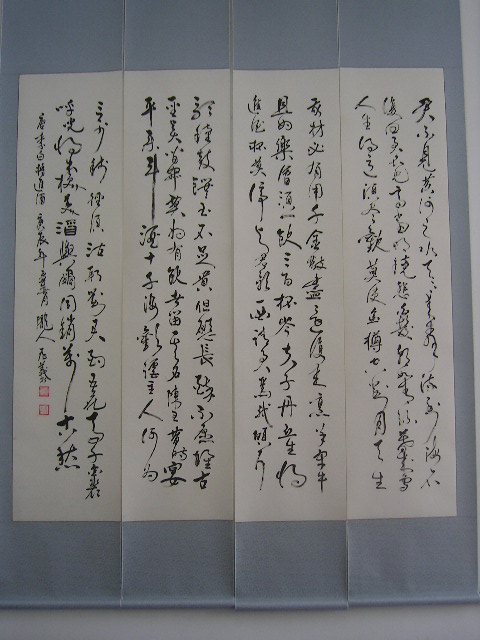 君不見黃河之水天上來奔流到海不
復回君不見高堂明鏡悲白髮朝如青絲暮成雪
人生得意須盡歡莫使金樽空對月天生
我材必有用千金散盡還復來烹羊宰牛
且為樂會須一飲三百杯岑夫子丹丘生將
進酒杯莫停與君歌一曲請君為我傾耳
聽鐘鼓饌玉不足貴但願長醉不願醒古
聖賢皆寂寞惟有飲者留其名陳王昔時宴
平樂斗酒十千恣歡謔主人何為
言少錢徑須沽取對君酌五花馬千金裘
呼兒將出換美酒與爾同銷萬古愁
唐李白將進酒 庚辰年 隴人